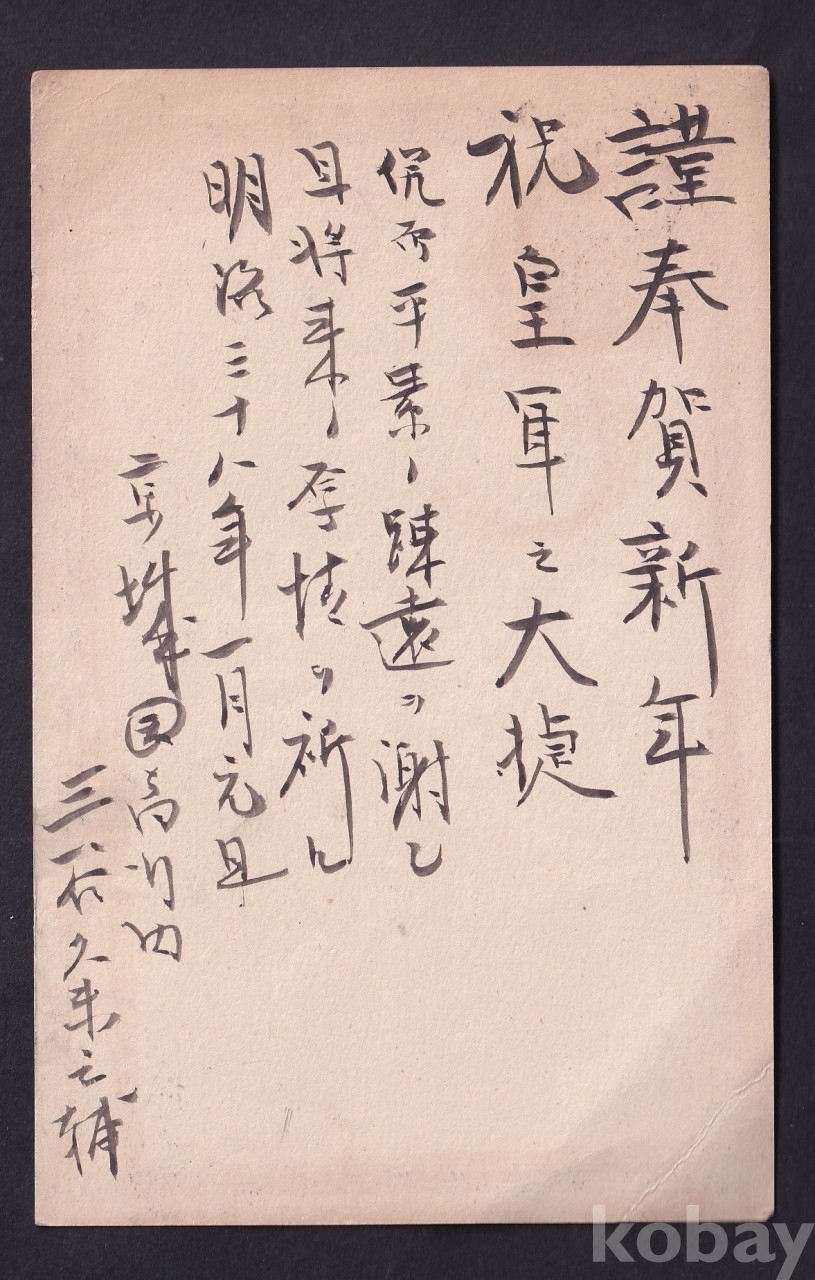 謹奉賀新年
祝皇軍之大捷
併而平素ノ踈遠ヲ謝し
且将来ノ厚情ヲ祈ル
明治三十八年一月元旦
京城
三 久来之輔
kobay